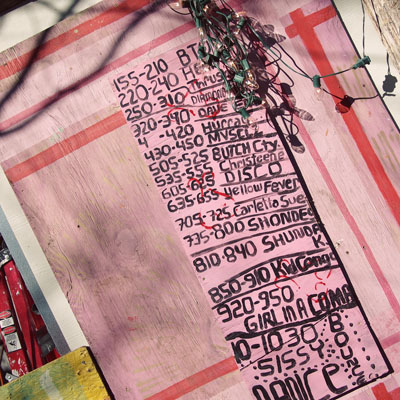 155-210 BT
220-240 HE
250-310 Thrus
320-390 DIAMOND
4 -420 DAVE
430-450 HUNGRY MYSELF
505-525 BUTCH City
535-555 Christeene
605-625 DISCO
635-655 Yellow Fever
705-725 Carletta Sue
735-800 SHONDES
810-840 SHUNDA K.
850-910 Kid Congo
920-950 GIRL IN A COMA
0-1030 SISSY BOUNCE
DANCE